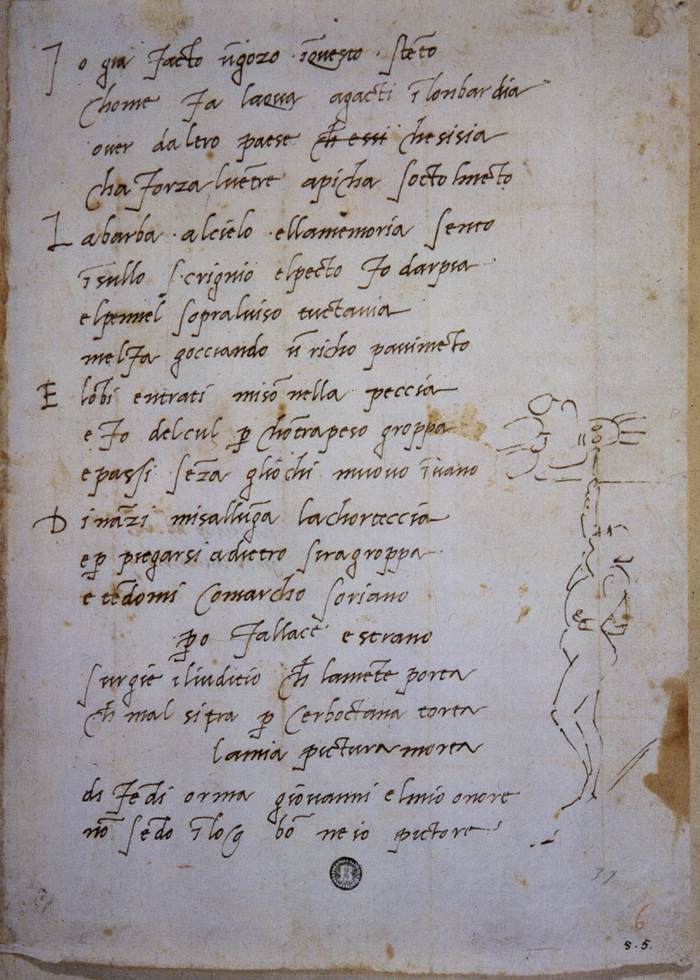 I o gia facto ūgozo īquesto · stēto
chome fa laqua agacti ī lonbardia
over daltro paese ch̄ essi chesisia
cha forza lvētre apicha socto lmēto
L a barba · alcielo · ellamemoria sento
ī sullo scrignio elpecto fo darpia
elpennel sopralviso tuctavia
melfa gocciando ū richo pavimēto
E lōbi entrati misō nella peccia
e fo delcul p̱ chōtrapeso groppa
e passi sēza gliochi muovo īvano
D ināzi misallūga lachorteccia
e p̱ piegarsi adietro siragroppa
e tēdomi comarcho soriano
p̱o fallace e strano
surgie iliuditio ch̄ lamēte porta
ch̄ mal sitra p̱ cerboctana torta
lamia pictura morta
di fēdi orma giovanni elmio onore
nō sēdo ī loco bō ne io pictore
37
6
s. 5.